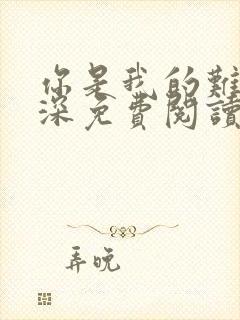 你是我的難
深免費閱讀
弄晚